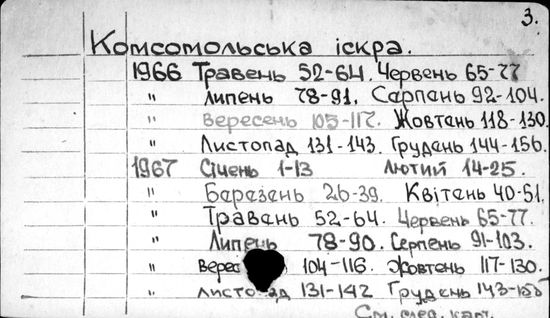 3.
Комсомольська іскра.
1966 Травень 52-64. Червень 65-77
" Липень 78-91. Сарпань 92-104.
" Вересень 105-117. Жовтень 118-130.
" Листопад 131-143. Грудень 144-156.
1967 Січень 1-13 Лютий 14-25.
" Березень 26-39. Квітень 40-51.
" Травень 52-64. Червень 65-77.
" Липень 78-90. Серпень 91-103.
" Верес 104-116. Жовтень 117-130.
" Листопад 131-142 Грудень 143-155
См. след. карт.